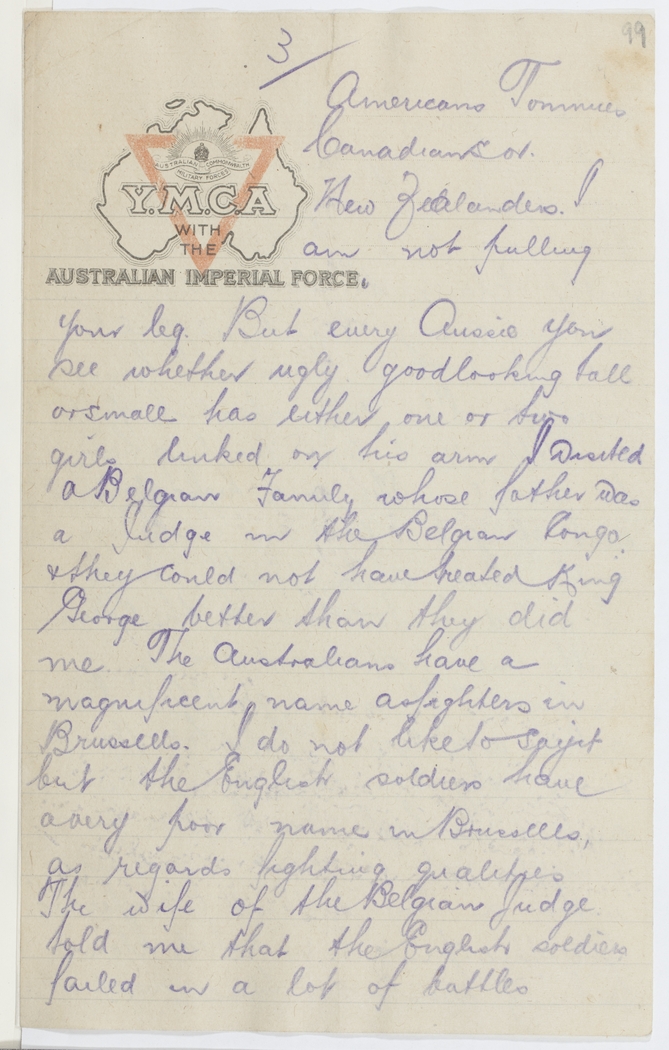 99
3/
Americans Tommies
Canadians or.
New Zealanders. I
am not pulling
AUSTRALIAN COMMONWEALTH
MILITARY FORCES
Y.M.C.A
WITH
THE
AUSTRALIAN IMPERIAL FORCE.
your leg. But every Aussie you
see whether ugly goodlooking tall
or small has either one or two
girls linked on his arm I visited
a Belgian Family whose father was
a Judge in the Belgian Congo
& they could not have treated King
George better than they did
me. The Australians have a
magnificent name as fighters in
Brussells. I do not like to say it
but the English soldiers have
a very poor name in Brussells,
as regards fighting qualities
The wife of the Belgian Judge
told me that the English soldiers
failed in a lot of battles